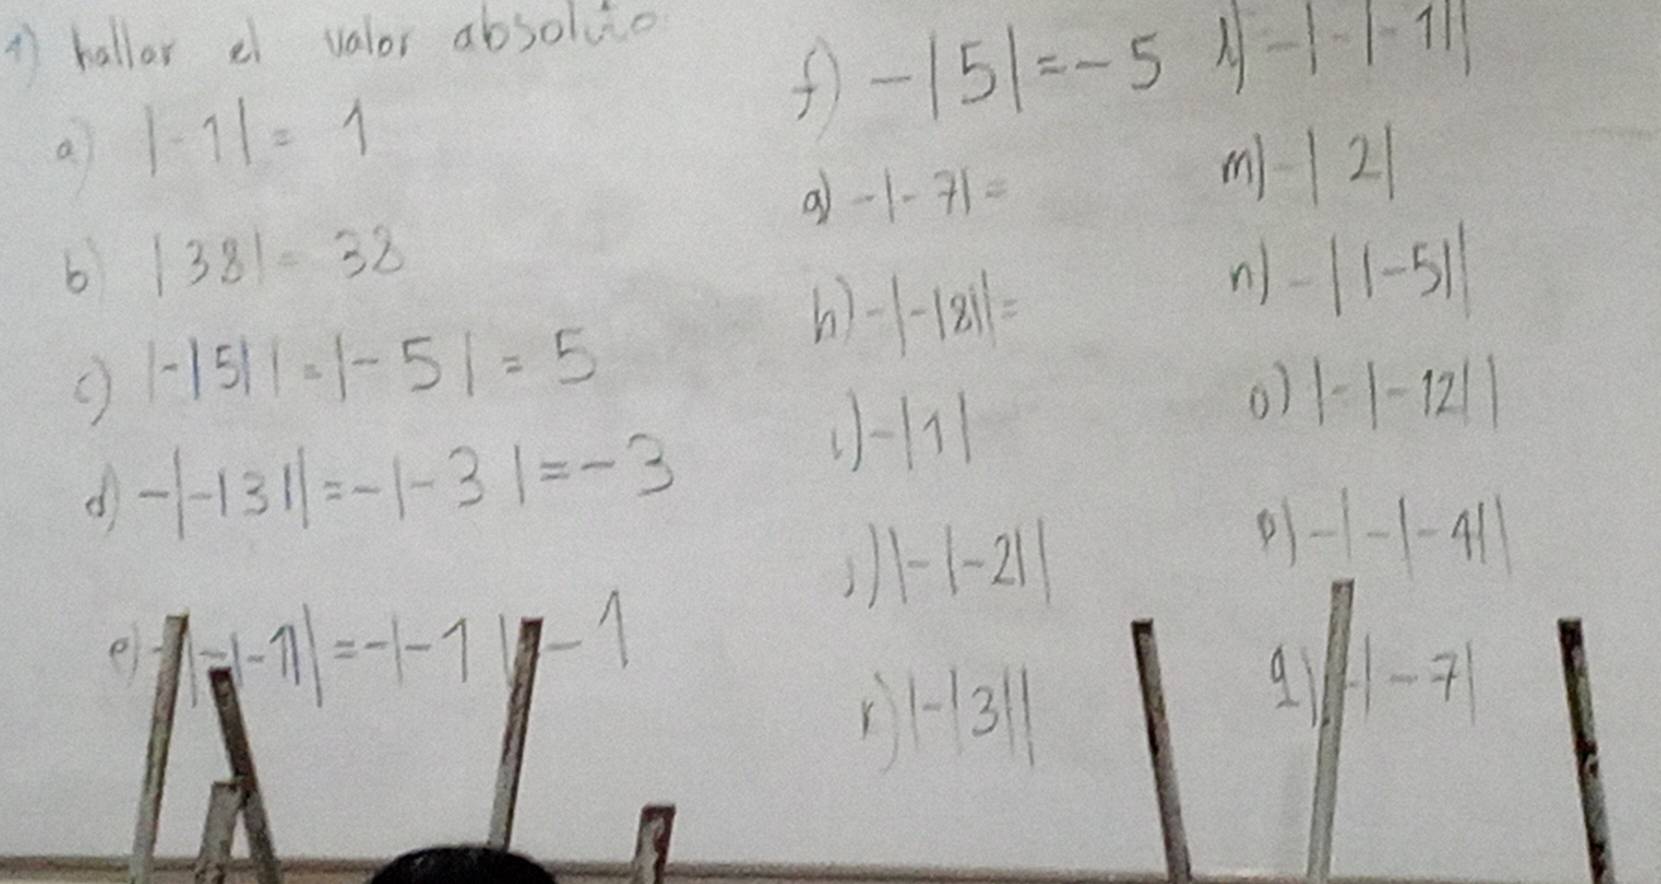 1) hallar el valor absoluto
a) |-1| = 1
b) |38| = 38
c) |-|5|| = |-5| = 5
d) -|-|3|| = -|-3| = -3
e) -|-|-1|| = -|-1| -1
f) -|5| = -5
g) -|-7| =
h) -|-|8|| =
i) -|1|
j) |-|-2||
k) |-|3||
l) -|-|-1||
m) -|2|
n) -||-5||
o) |-|-12||
p) -|-|-4||
q) -|-7|